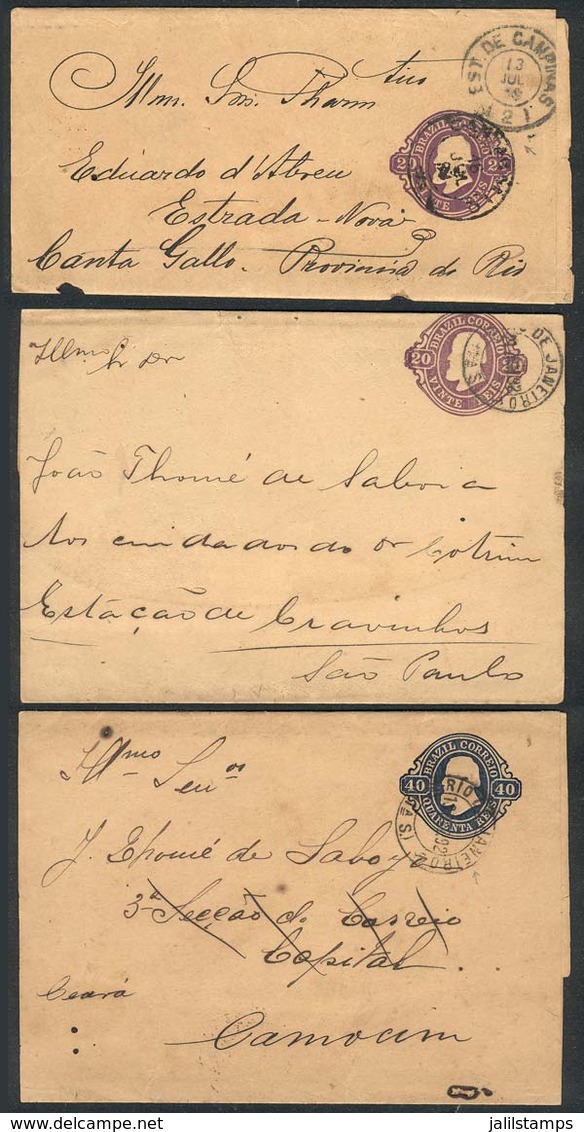 EST. DE CAMPINAS
13
JUL
M 2 I
Illm. Snr. Pharm tico
BRAZIL CORREIO
20 20
VINTE REIS
Eduardo d'Abreu
Estrada - Nova
Canta Gallo - Provincia do Rio
BRAZIL CORREIO
20 20
VINTE REIS
DE JANEIRO
Illmo Sr Dr
João Thomé de Saboia
Aos cuidados do Dr Cotrim
Estação de Cravinhos
São Paulo
BRAZIL CORREIO
40 40
QUARENTA REIS
RIO JANEIRO
92
Illmo Senr
J. Thomé de Saboya
3ª Secção do Correio
Capital
Ceará
Camocim
jalilstamps